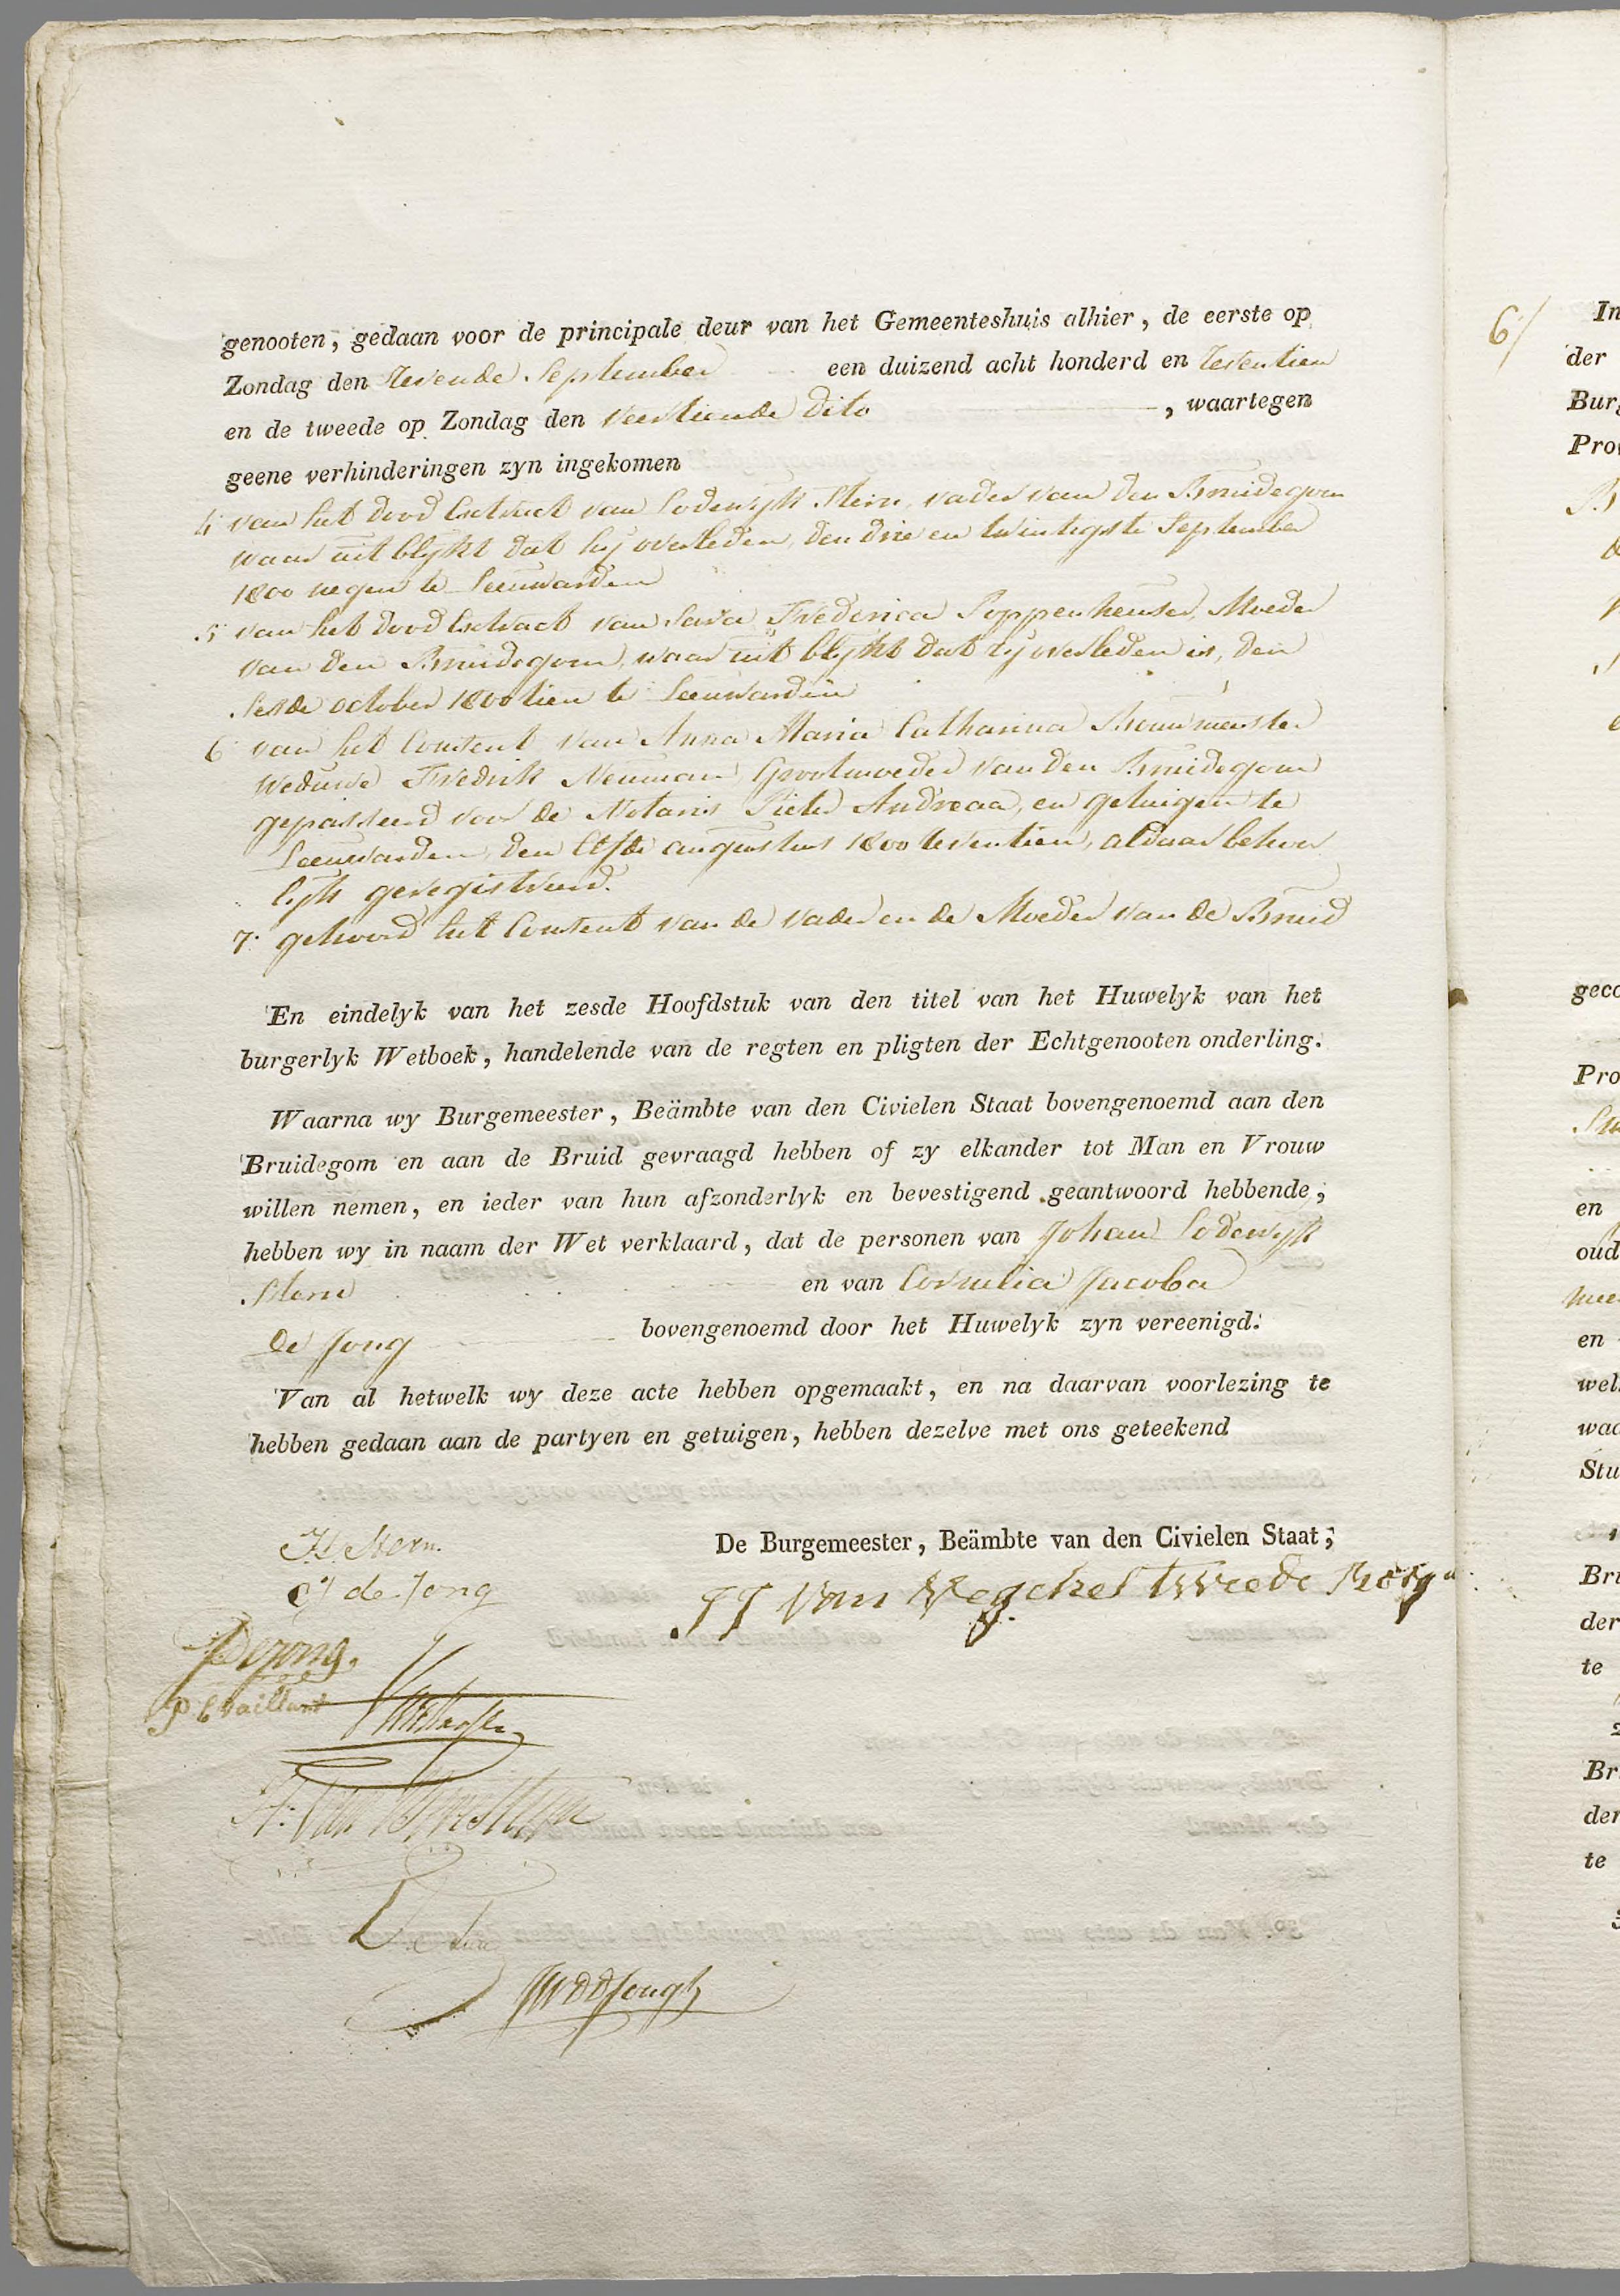 genooten, gedaan voor de principale deur van het Gemeenteshuis alhier, de eerste op
Zondag den Zevende September een duizend acht honderd en Zeventien
en de tweede op Zondag den veertiende dito, waartegen
geene verhinderingen zyn ingekomen
4 van het dood Extract van Lodewijk Stern, vader van den Bruidegom
waar uit blijkt dat hij overleden, den drie en twintigste September
1800 negen te Leeuwarden
5 van het dood Extract van Sara Frederica Poppenheuser, Moeder
van den Bruidegom, waar uit blijkt dat zij overleden is, den
Sesde october 1800 tien te Leeuwarden
6 van het Consent van Anna Maria Catharina Brouwmeester
Weduwe Fredrik Neuman, Grootmoeder van den Bruidegom
gepasseerd voor de Notaris Pieter Andreaa, en getuigen te
Leeuwarden, den Elfde augustus 1800 zeventien, aldaar behoor
lijk geregistreerd.
7. gehoord het Consent van de vader en de Moeder van de Bruid
En eindelyk van het zesde Hoofdstuk van den titel van het Huwelyk van het
burgerlyk Wetboek, handelende van de regten en pligten der Echtgenooten onderling.
Waarna wy Burgemeester, Beämbte van den Civielen Staat bovengenoemd aan den
Bruidegom en aan de Bruid gevraagd hebben of zy elkander tot Man en Vrouw
willen nemen, en ieder van hun afzonderlyk en bevestigend geantwoord hebbende,
hebben wy in naam der Wet verklaard, dat de personen van Johan Lodewijk
Stern en van Cornelia Jacoba
de Jong bovengenoemd door het Huwelyk zyn vereenigd.
Van al hetwelk wy deze acte hebben opgemaakt, en na daarvan voorlezing te
hebben gedaan aan de partyen en getuigen, hebben dezelve met ons geteekend
De Burgemeester, Beämbte van den Civielen Staat,
Stern.
CJ de Jong
van Veghel tweede
Dejong.
P C Vaillant
H. van
6/
In
der
Burg
Prov
geco
Pro
en
oud
mee
en
wel
waa
Stu
Bru
der
te
Br
der
te